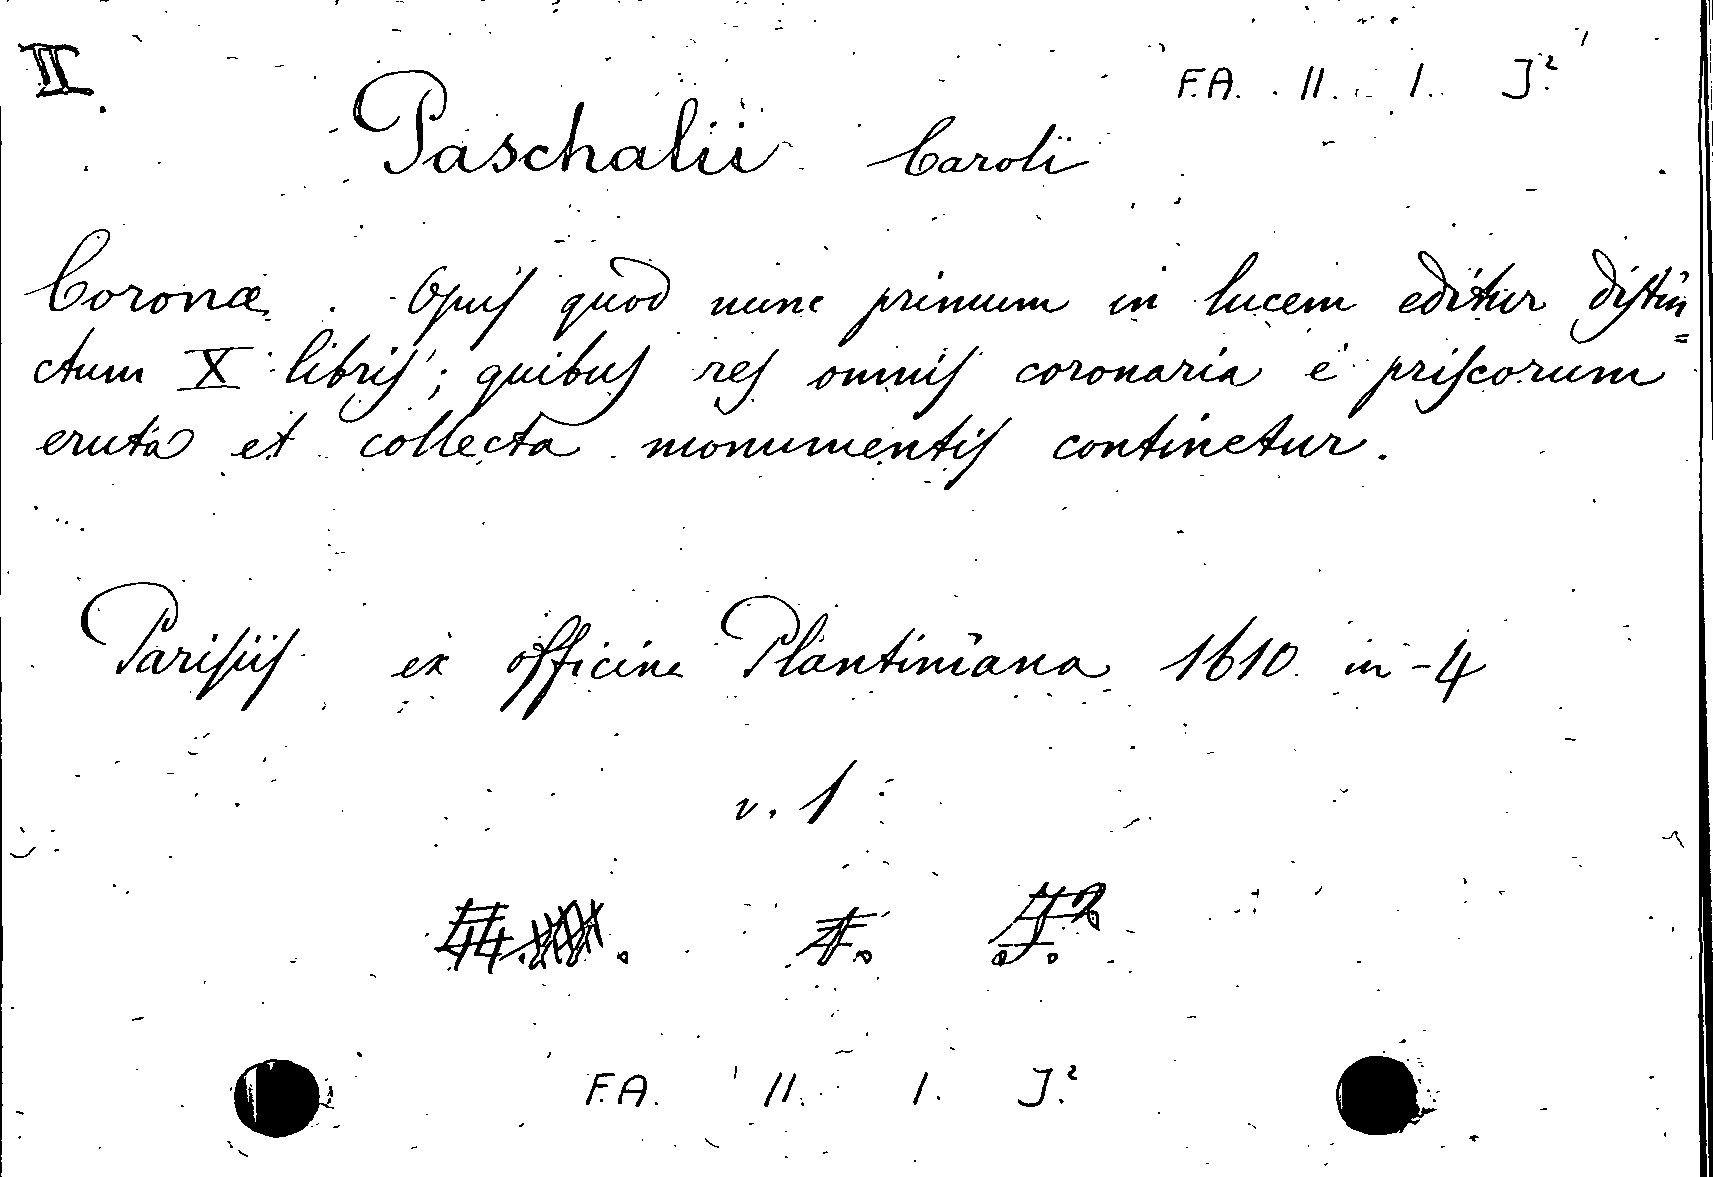 II.
F.A. II. I. J.²
Paschalii Caroli
Coronæ. Opus quod nunc primum in lucem editur distin=
ctum X libris; quibus res omnis coronaria e priscorum
eruta et collecta monumentis continetur.
Parisiis ex officina Plantiniana 1610 in-4
v. 1
I. J.²
F.A. II. I. J.²